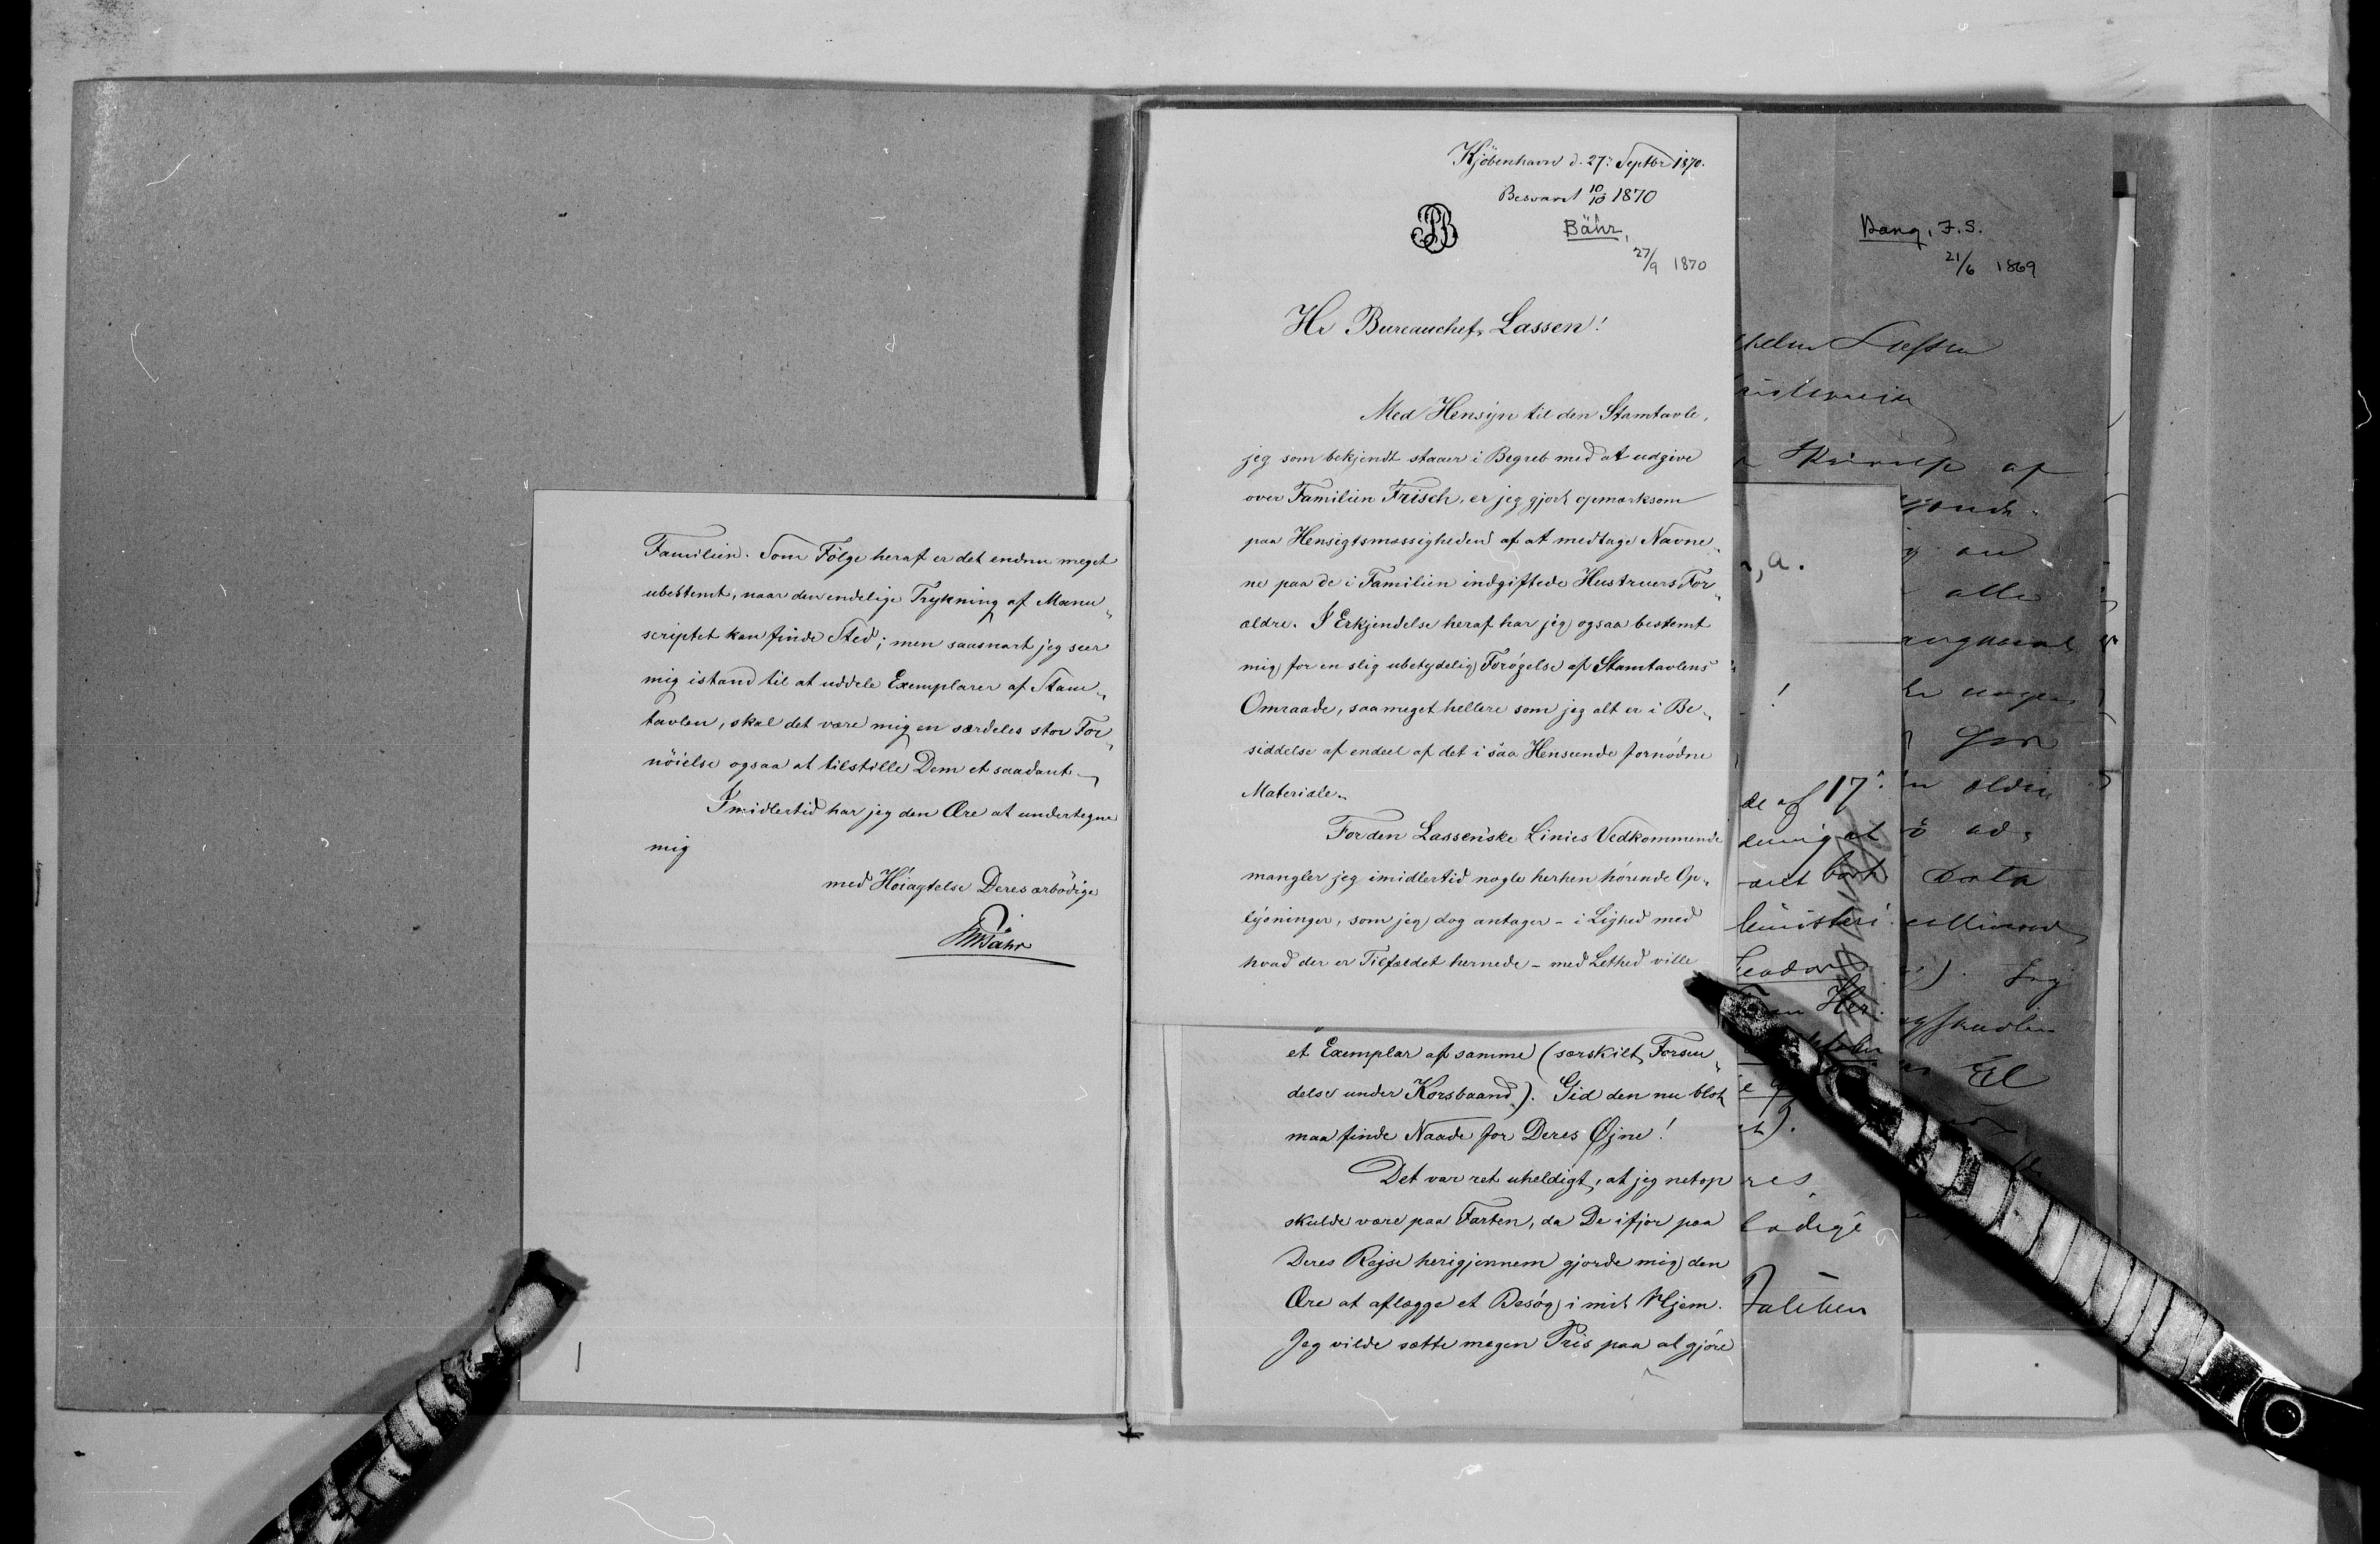 Familien. Som Følge heraf er det endnu meget
ubestemt, naar den endelige Trykning af Manu„
scriptet kan finde Sted; men saasnart jeg seer
mig istand til at uddele Exemplarer af Stam„
tavlen, skal det være mig en særdeles stor For„
nöielse ogsaa at tilstille Dem et saadant.
Imidlertid har jeg den Ære at undertegne
mig
med Höiagtelse Deres ærbödige
Bähr
Kjöbenhavn d. 27. Septbr 1870.
Besvaret 10/10 1870
Bähr,
27/9 1870
Hr Bureauchef Lassen!
Med Hensyn til den Stamtavle,
jeg som bekjendt staaer i Begreb med at udgive
over Familien Frisch, er jeg gjort opmærksom
paa Hensigtsmæssigheden af at medtage Navne„
ne paa de i Familien indgiftede Hustruers For„
ældre. I Erkjendelse heraf har jeg ogsaa bestemt
mig for en slig ubetydelig Forögelse af Stamtavlens
Omraade, saameget hellere som jeg alt er i Be„
siddelse af endeel af det i saa Henseende fornödne
Materiale.
For den Lassen'ske Linies Vedkommende
mangler jeg imidlertid nogle herhen hörende Op„
lysninger, som jeg dog antager – i Lighed med
hvad der er Tilfældet hernede – med Lethed ville
et Exemplar af samme (særskilt Forsen„
delse under Korsbaand). Gid den nu blot
maa finde Naade for Deres Øjne!
Det var ret uheldigt, at jeg netop
skulde være paa Farten, da De ifjor paa
Deres Rejse herigjennem gjorde mig den
Ære at aflægge et Besög i mit Hjem.
Jeg vilde sætte megen Pris paa at gjöre
, a.
!
de af 17
bort
Her
et).
res
Bang, F. S.
21/6 1869
af
alle
Data
Jeg